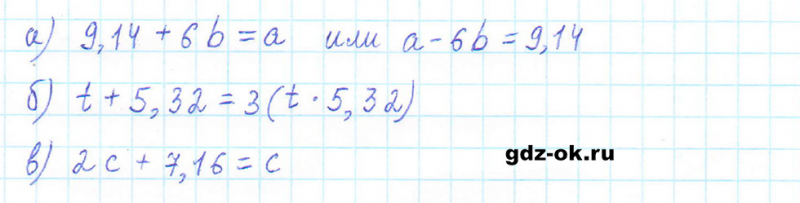 а) 9,14 + 6b = a или a - 6b = 9,14
б) t + 5,32 = 3(t · 5,32)
в) 2c + 7,16 = c
gdz-ok.ru